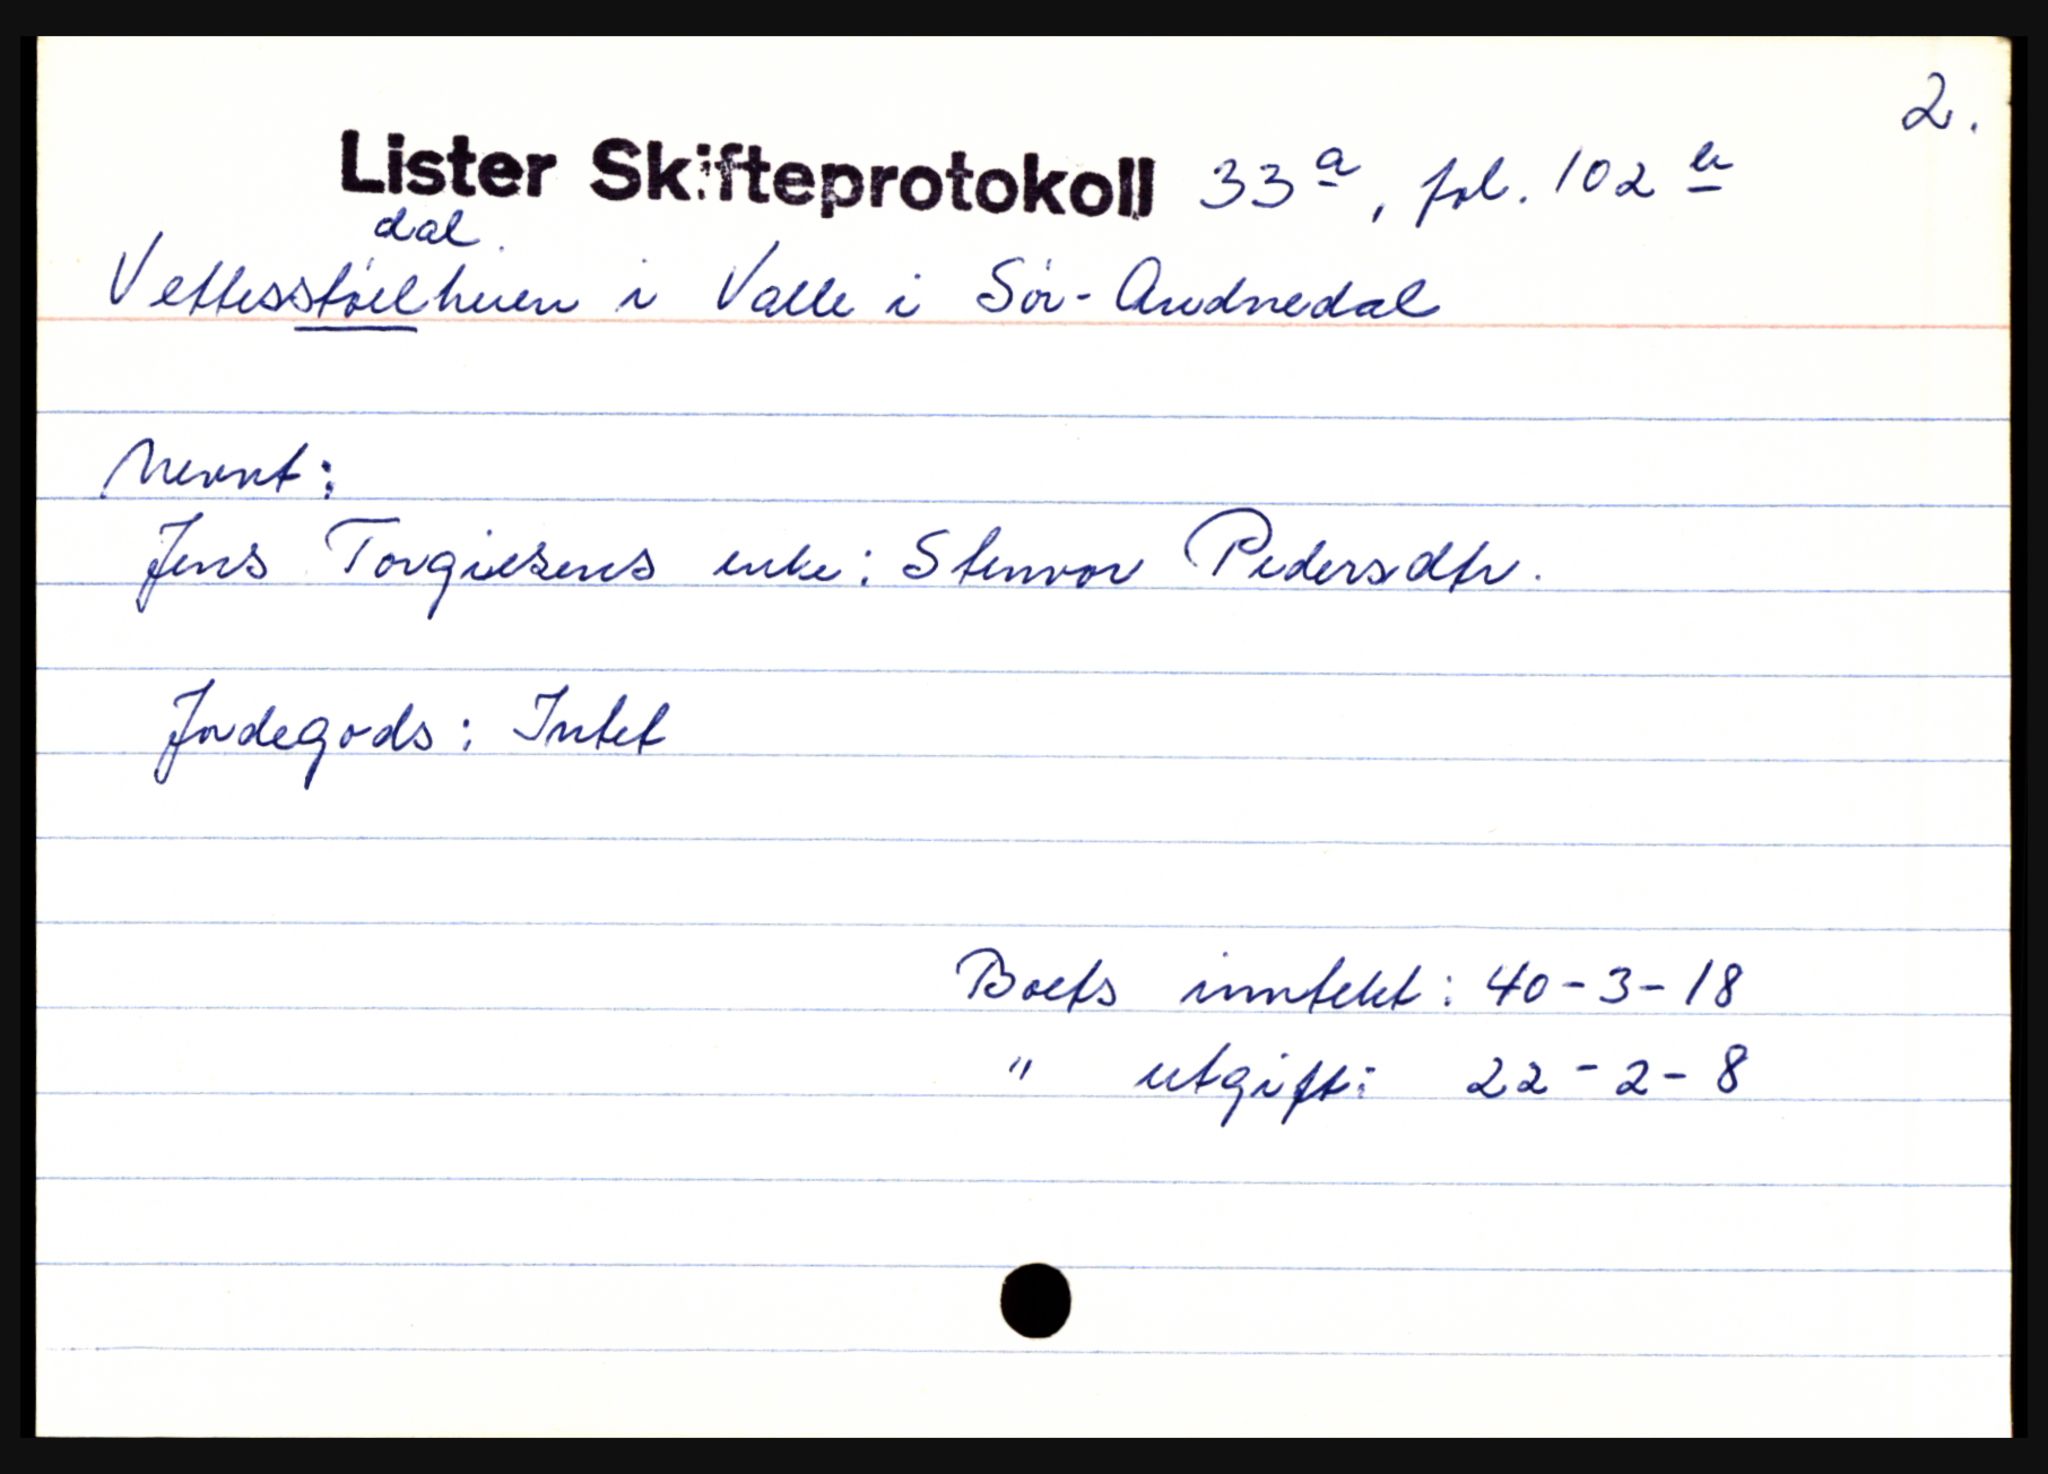 2.
Lister Skifteprotokoll 33a, fol. 102b
dal
Vettesstøelheien i Valle i Sør-Audnedal
Nevnt:
Jens Torgiesens enke: Stenvor Pedersdtr.
Jordegods: Intet
Boets inntekt: 40-3-18
" utgift: 22-2-8